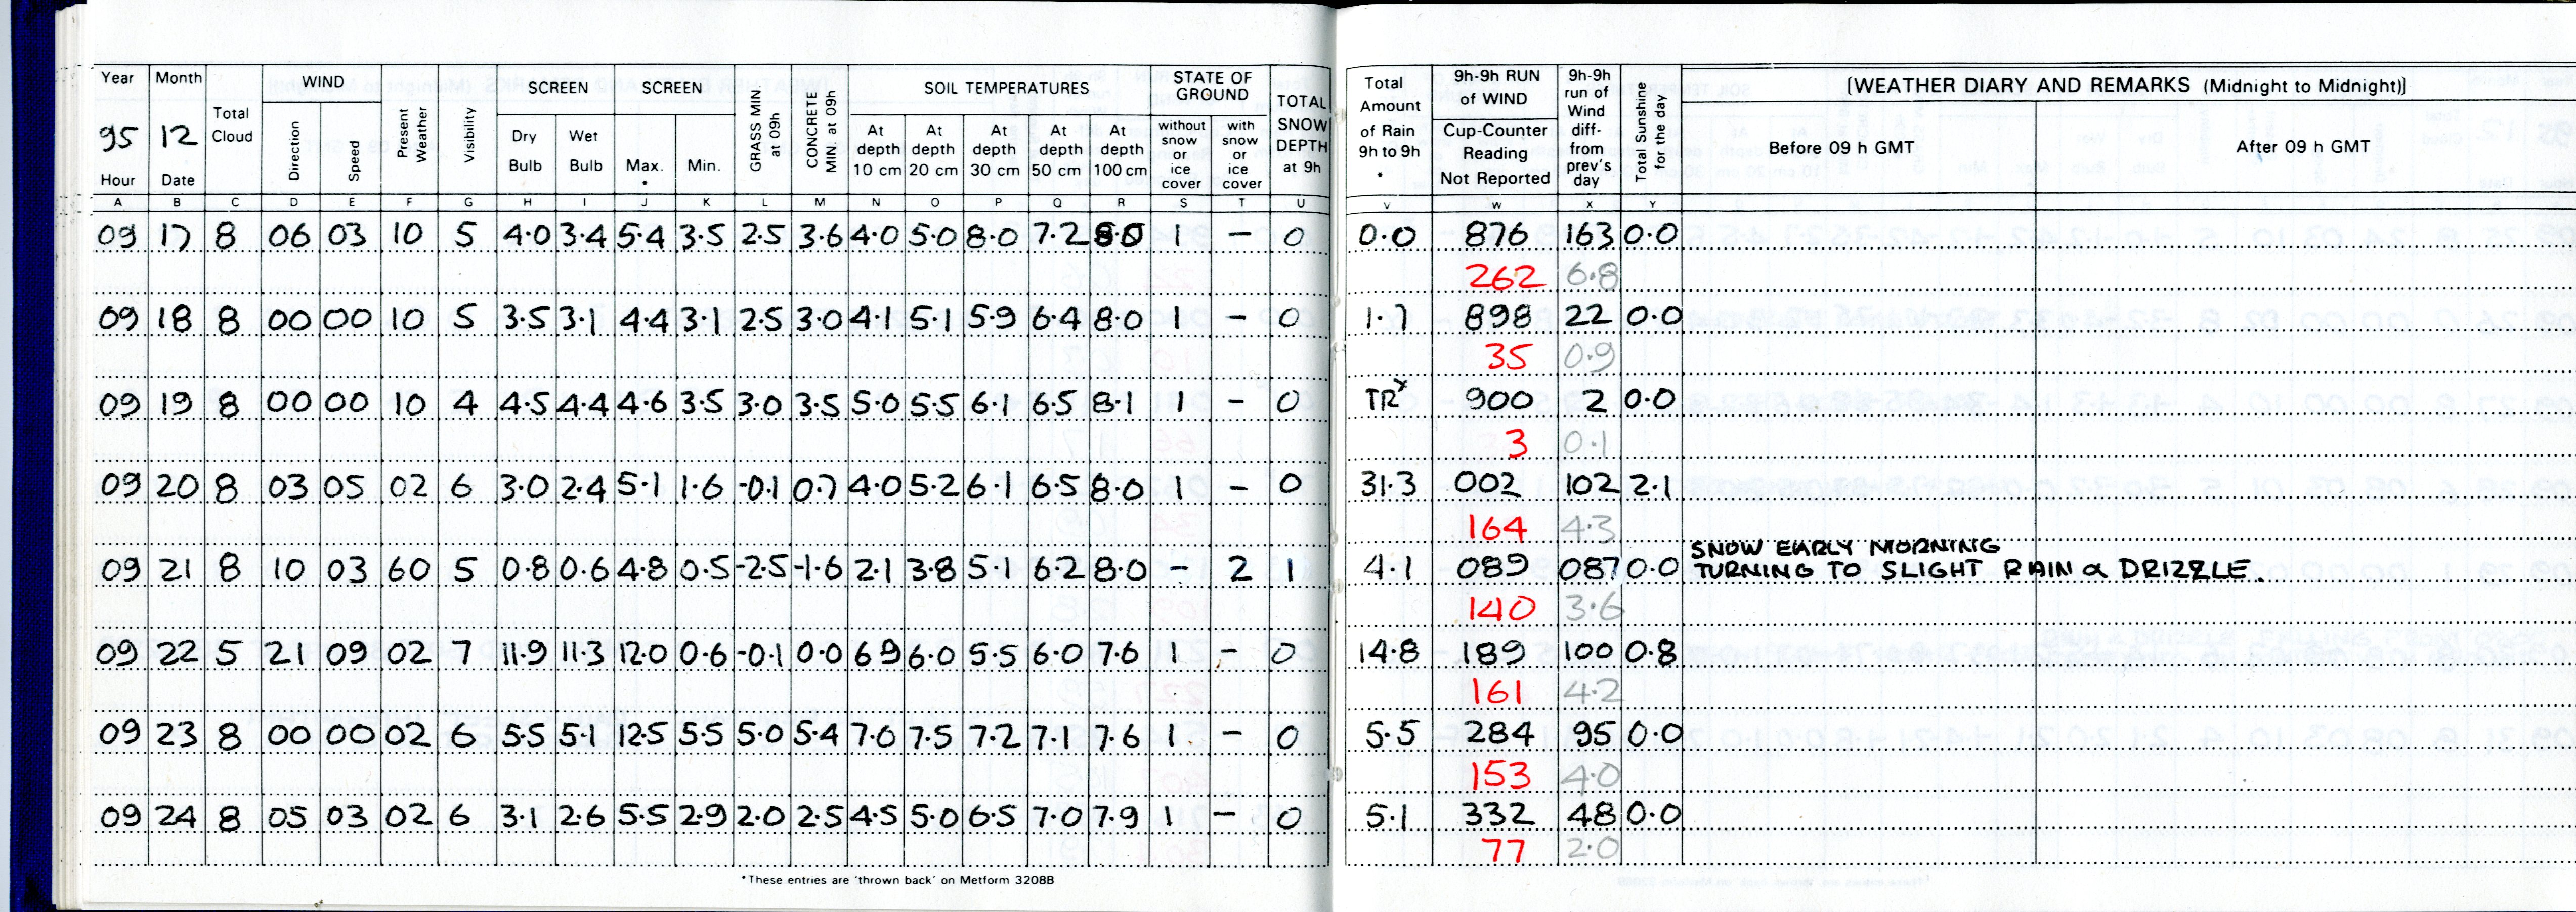 Year Month Total Cloud WIND Direction Speed Present Weather Visibility SCREEN Dry Bulb Wet Bulb SCREEN Max. • Min. GRASS MIN at 09h CONCRETE MIN at 09h SOIL TEMPERATURES At depth 10 cm At depth 20 cm At depth 30 cm At depth 50 cm At depth 100 cm STATE OF GROUND without snow or ice cover with snow or ice cover TOTAL SNOW DEPTH at 9h Total Amount of Rain 9h to 9h • 9h-9h RUN of WIND Cup-Counter Reading Not Reported 9h-9h run of Wind diff- from prev's day Total Sunshine for the day [WEATHER DIARY AND REMARKS (Midnight to Midnight)]
95 12
Hour Date Before 09 h GMT After 09 h GMT
A B C D E F G H I J K L M N O P Q R S T U V W X Y
09 17 8 06 03 10 5 4.0 3.4 5.4 3.5 2.5 3.6 4.0 5.0 8.0 7.2 8.0 1 – 0 0.0 876 163 0.0
262 6.8
09 18 8 00 00 10 5 3.5 3.1 4.4 3.1 2.5 3.0 4.1 5.1 5.9 6.4 8.0 1 – 0 1.7 898 22 0.0
35 0.9
09 19 8 00 00 10 4 4.5 4.4 4.6 3.5 3.0 3.5 5.0 5.5 6.1 6.5 8.1 1 – 0 TR 900 2 0.0
3 0.1
09 20 8 03 05 02 6 3.0 2.4 5.1 1.6 -0.1 0.7 4.0 5.2 6.1 6.5 8.0 1 – 0 31.3 002 102 2.1
164 4.3
SNOW EARLY MORNING
09 21 8 10 03 60 5 0.8 0.6 4.8 0.5 -2.5 -1.6 2.1 3.8 5.1 6.2 8.0 – 2 1 4.1 089 087 0.0 TURNING TO SLIGHT RAIN & DRIZZLE.
140 3.6
09 22 5 21 09 02 7 11.9 11.3 12.0 0.6 -0.1 0.0 6 9 6.0 5.5 6.0 7.6 1 – 0 14.8 189 100 0.8
161 4.2
09 23 8 00 00 02 6 5.5 5.1 12.5 5.5 5.0 5.4 7.0 7.5 7.2 7.1 7.6 1 – 0 5.5 284 95 0.0
153 4.0
09 24 8 05 03 02 6 3.1 2.6 5.5 2.9 2.0 2.5 4.5 5.0 6.5 7.0 7.9 1 – 0 5.1 332 48 0.0
77 2.0
*These entries are 'thrown back' on Metform 3208B